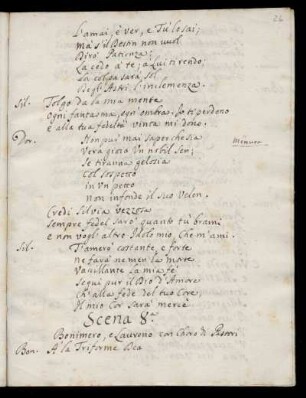 26
L'amai, è ver, e Tù lo sai;
ma s'il Destin non vuol
Dirò Patienza;
La cedo à te; a qui ti rendo;
La colpa sarà sol
degl'Astri l'inclemenza.
Sil. Tolgo da la mia mente
Ogni fantasma, ogn'ombra. Io ti perdono
e alla tua fedeltà vinta mi dono.
Dor. Non può mai saper che sia
Minuet
Vera gioia Un nobil sen;
Se tiranna gelosia
Col sospetto
in Un petto
non infonde il suo Velen.
Credi Silvia vezzosa
Sempre fedel sarò quanto tù brami
e non vogl'altro Idolo mio che m'ami.
Sil. T'amerò costante, e forte
ne farà ne men la morte
Vacillante La mia fè
Segui pur il Dio d'Amore
Ch'alla fede del tuo Core
Il mio Cor sarà mercè
Scena 8.a
Bonimero, e Laureno con Choro di Pastori
Bon. A la Triforme Dea